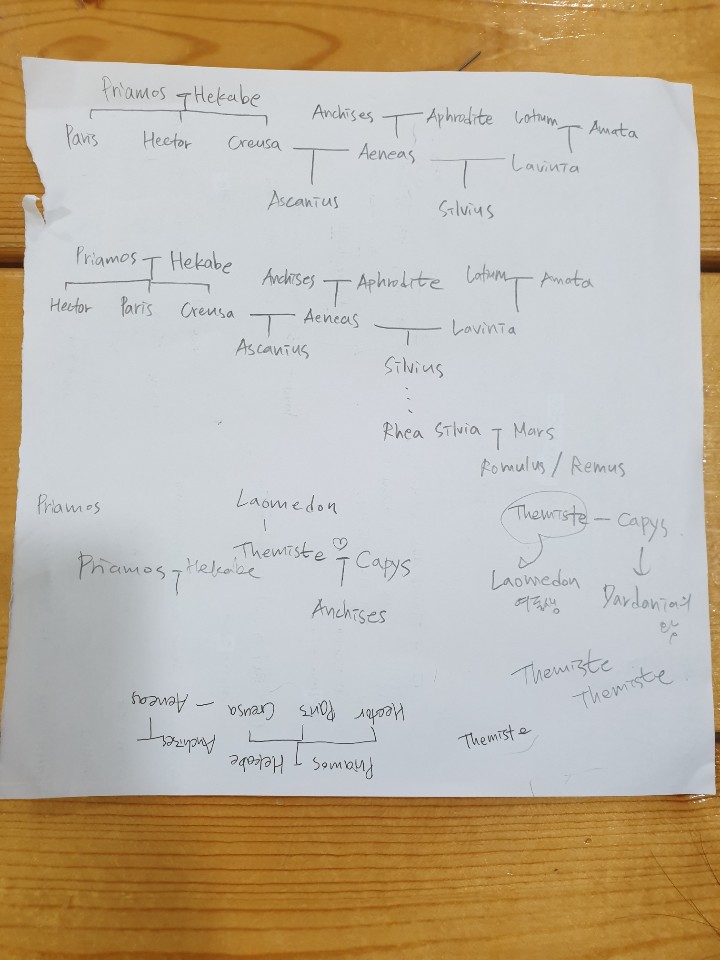 Priamos Hekabe
Anchises Aphrodite Latium Amata
Paris Hector Creusa Aeneas Lavinia
Ascanius Silvius
Priamos Hekabe
Anchises Aphrodite Latium Amata
Hector Paris Creusa Aeneas Lavinia
Ascanius
Silvius
Rhea Silvia Mars
Romulus / Remus
Priamos
Laomedon
Themiste ♡ Capys
Priamos Hekabe
Anchises
Themiste – Capys
Laomedon
여동생
Dardania의
왕
Themiste
Themiste
Themiste
Priamos Hekabe
Anchises
Hector Paris Creusa – Aeneas